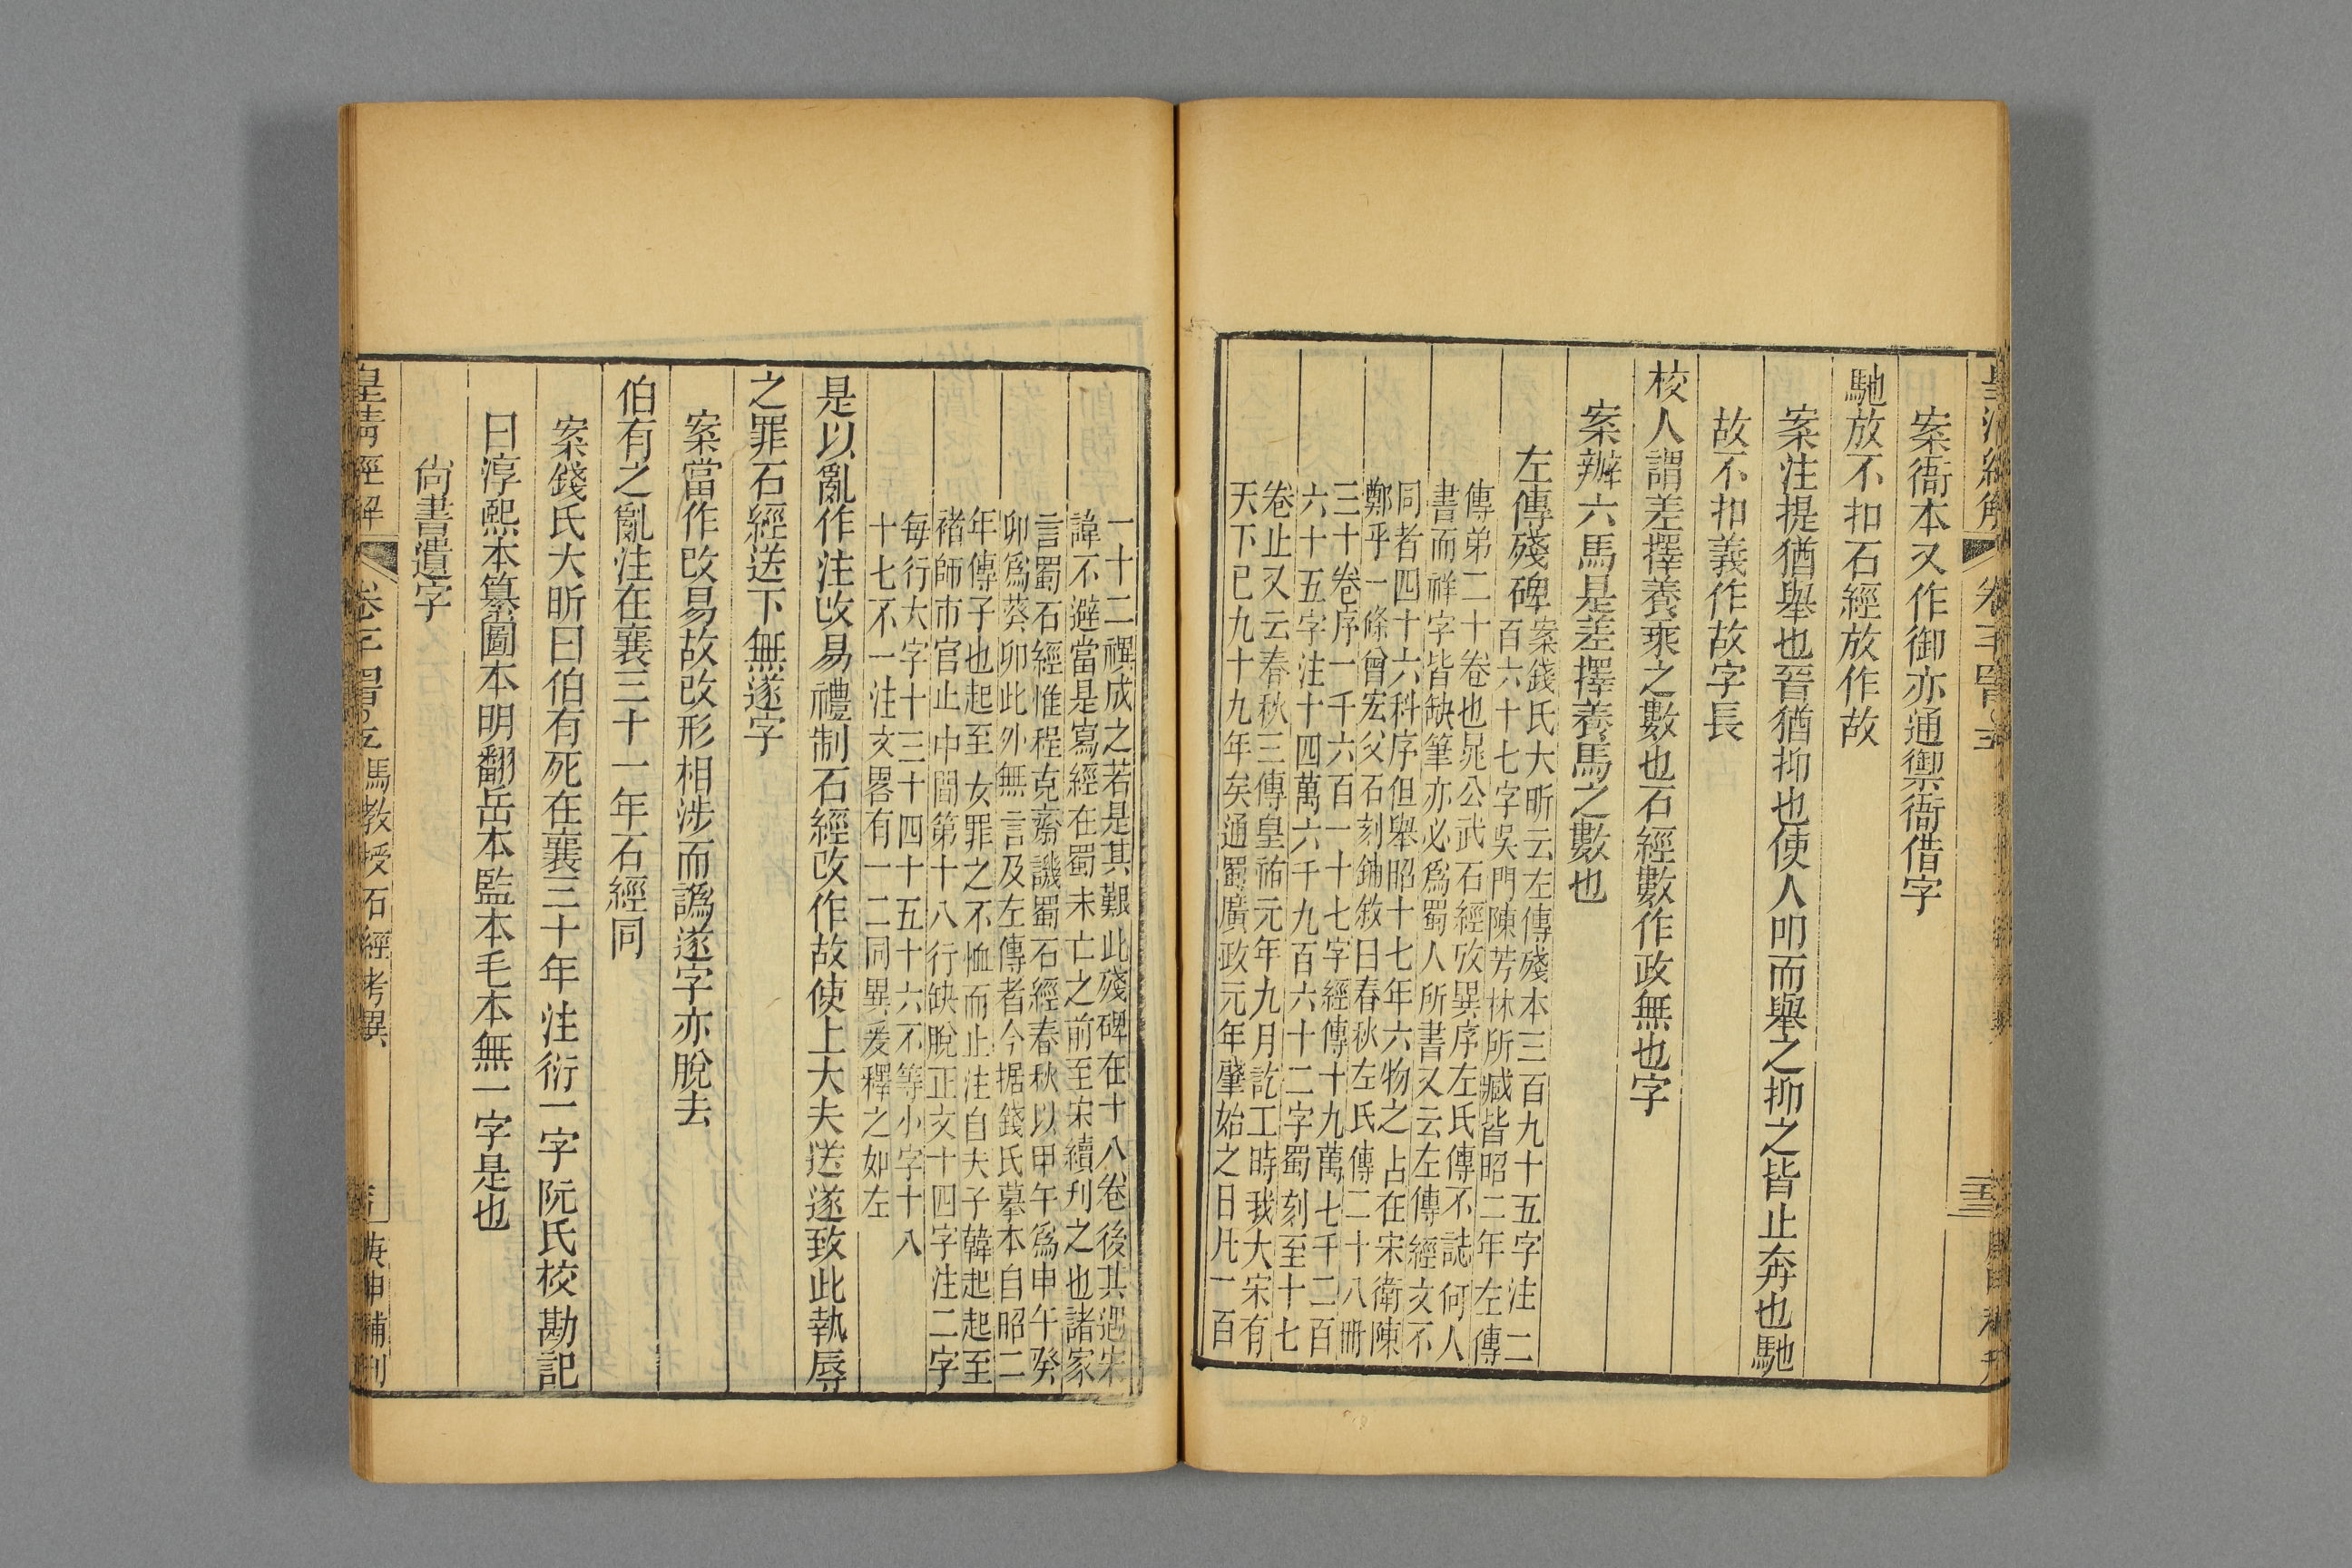 案衙本又作御亦通禦衙借字
馳放不扣石經放作故
案注提猶舉也晉猶抑也使人叩而舉之抑之皆止奔也馳
故不扣義作故字長
校人謂差擇養乘之數也石經數作政無也字
案辦六馬是差擇養馬之數也
左傳殘碑
案錢氏大昕云左傳殘本三百九十五字注二
百六十七字吳門陳芳林所臧皆昭二年左傳
傳弟二十卷也晁公武石經攷異序左氏傳不誌何人
書而祥字皆缺筆亦必爲蜀人所書又云左傳經文不
同者四十六科序但舉昭十七年六物之占在宋衛陳
鄭乎一條曾宏父石刻鋪敘曰春秋左氏傳二十八冊
三十卷序一千六百一十七字經傳十九萬七千二百
六十五字注十四萬六千九百六十二字蜀刻至十七
卷止又云春秋三傳皇祐元年九月訖工時我大宋有
天下已九十九年矣通蜀廣政元年肇始之日凡一百
一十二禩成之若是其艱此殘碑在十八卷後其遇宋
諱不避當是寫經在蜀未亡之前至宋續刋之也諸家
言蜀石經惟程克齋譏蜀石經春秋以甲午爲申午癸
卯爲葵卯此外無言及左傳者今据錢氏摹本自昭二
年傳子也起至女罪之不恤而止注自夫子韓起起至
褚師市官止中間第十八行缺脫正文十四字注二字
每行大字十三十四十五十六不等小字十八
十七不一注文畧有一二同異爰釋之如左
是以亂作注改易禮制石經改作故使上大夫送遂致此執辱
之罪石經送下無遂字
案當作改易故改形相涉而譌遂字亦脫去
伯有之亂注在襄三十一年石經同
案錢氏大昕曰伯有死在襄三十年注衍一字阮氏校勘記
曰淳熙本纂圖本明翻岳本監本毛本無一字是也
尚書遺字
皇清經解 馮教授石經考異 庚申補刊